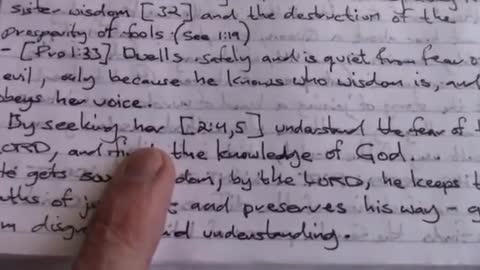 sister wisdom [32] and the destruction of the
prosperity of fools (see 1:19)
- [Pro 1:33] Dwells safely and is quiet from fear o
evil, only because he knows who wisdom is, and
obeys her voice.
By seeking her [2:4,5] understand the fear of
LORD, and the knowledge of God.
gets by the LORD, he keeps t
of and preserves his way -
understanding.